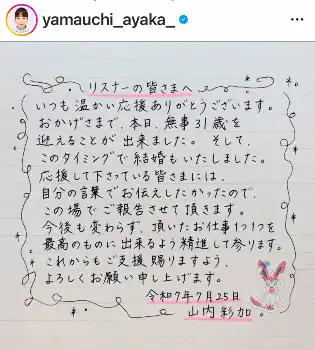 yamauchi_ayaka_
リスナーの皆さまへ
いつも温かい応援ありがとうございます。
おかげさまで、本日、無事31歳を
迎えることが出来ました。そして、
このタイミングで結婚もいたしました。
応援して下さっている皆さまには、
自分の言葉でお伝えしたかったので、
この場でご報告させて頂きます。
今後も変わらず、頂いたお仕事1つ1つを
最高のものに出来るよう精進して参ります。
これからもご支援賜りますよう、
よろしくお願い申し上げます。
令和7年7月25日
山内彩加